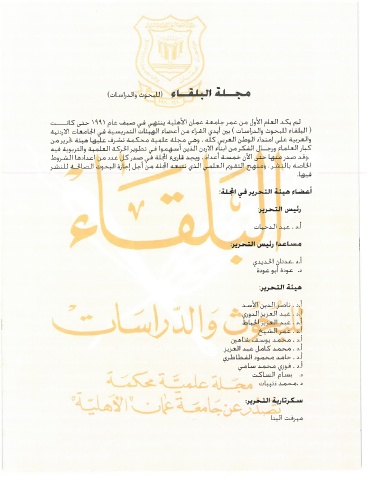 مجلة البلقاء (للبحوث والدراسات)
لم يكد العام الأول من عمر جامعة عمان الأهلية ينتهي في صيف عام ١٩٩١ حتى كانت
( البلقاء للبحوث والدراسات ) بين أيدي القراء من أعضاء الهيئات التدريسية في الجامعات الاردنية
والعربية على امتداد الوطن العربي كله ، وهي مجلة علمية محكمة تشرف عليها هيئة تحرير من
كبار العلماء ورجال الفكر من أبناء الأردن الذين أسهموا في تطوير الحركة العلمية والتربوية فيه
. وقد صدر منها حتى الآن خمسة أعداد . ويجد قارىء المجلة في صدر كل عدد من أعدادها الشروط
الخاصة بالنشر ، ومنهج التقويم العلمي الذي تتبعه المجلة من أجل إجازة البحوث الصالحة للنشر
فيها.
أعضاء هيئة التحرير في المجلة:
رئيس التحرير:
أ.د . عبد الرحيات
مساعدا رئيس التحرير:
أ.د. عدنان الحديدي
د. عودة أبو عودة
هيئة التحرير:
أ.د . ناصر الدين الأسد
أ.د . عبد العزيز الدوري
أ.د . عبد العزيز الخياط
أ.د . عمر الشيخ
أ.د . محمد يوسف شاهين
أ.د . محمد كامل عبد العزيز
أ.د . حامد محمود
أ.د . فوزي محمد سامي
د. بسام الساكت
د. محمد ذنيبات
سكرتارية التحرير:
ميرفت البنا
البلقاء
للبحوث والدراسات
مجلة علمية محكمة
تصدر عن جامعة عمان "الأهلية"